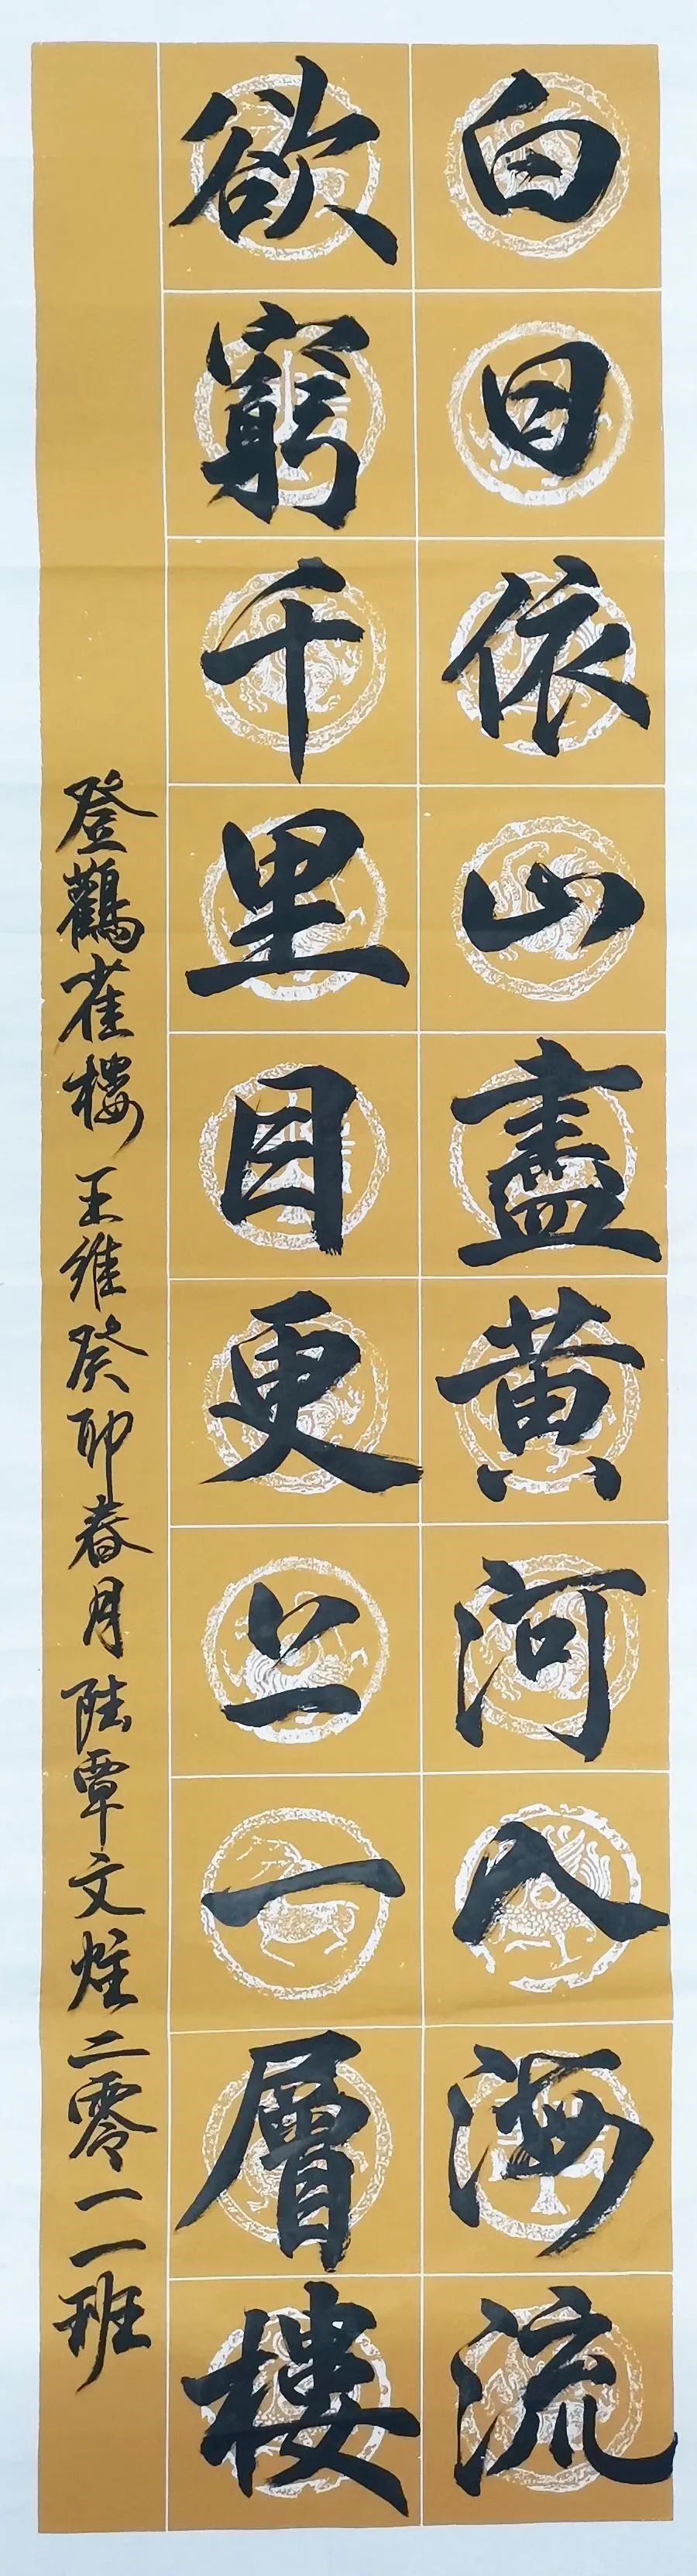 白日依山盡黄河入海流
欲窮千里目更上一層樓
登鸛雀樓 王維癸卯春月陸覃文炷二零一一班